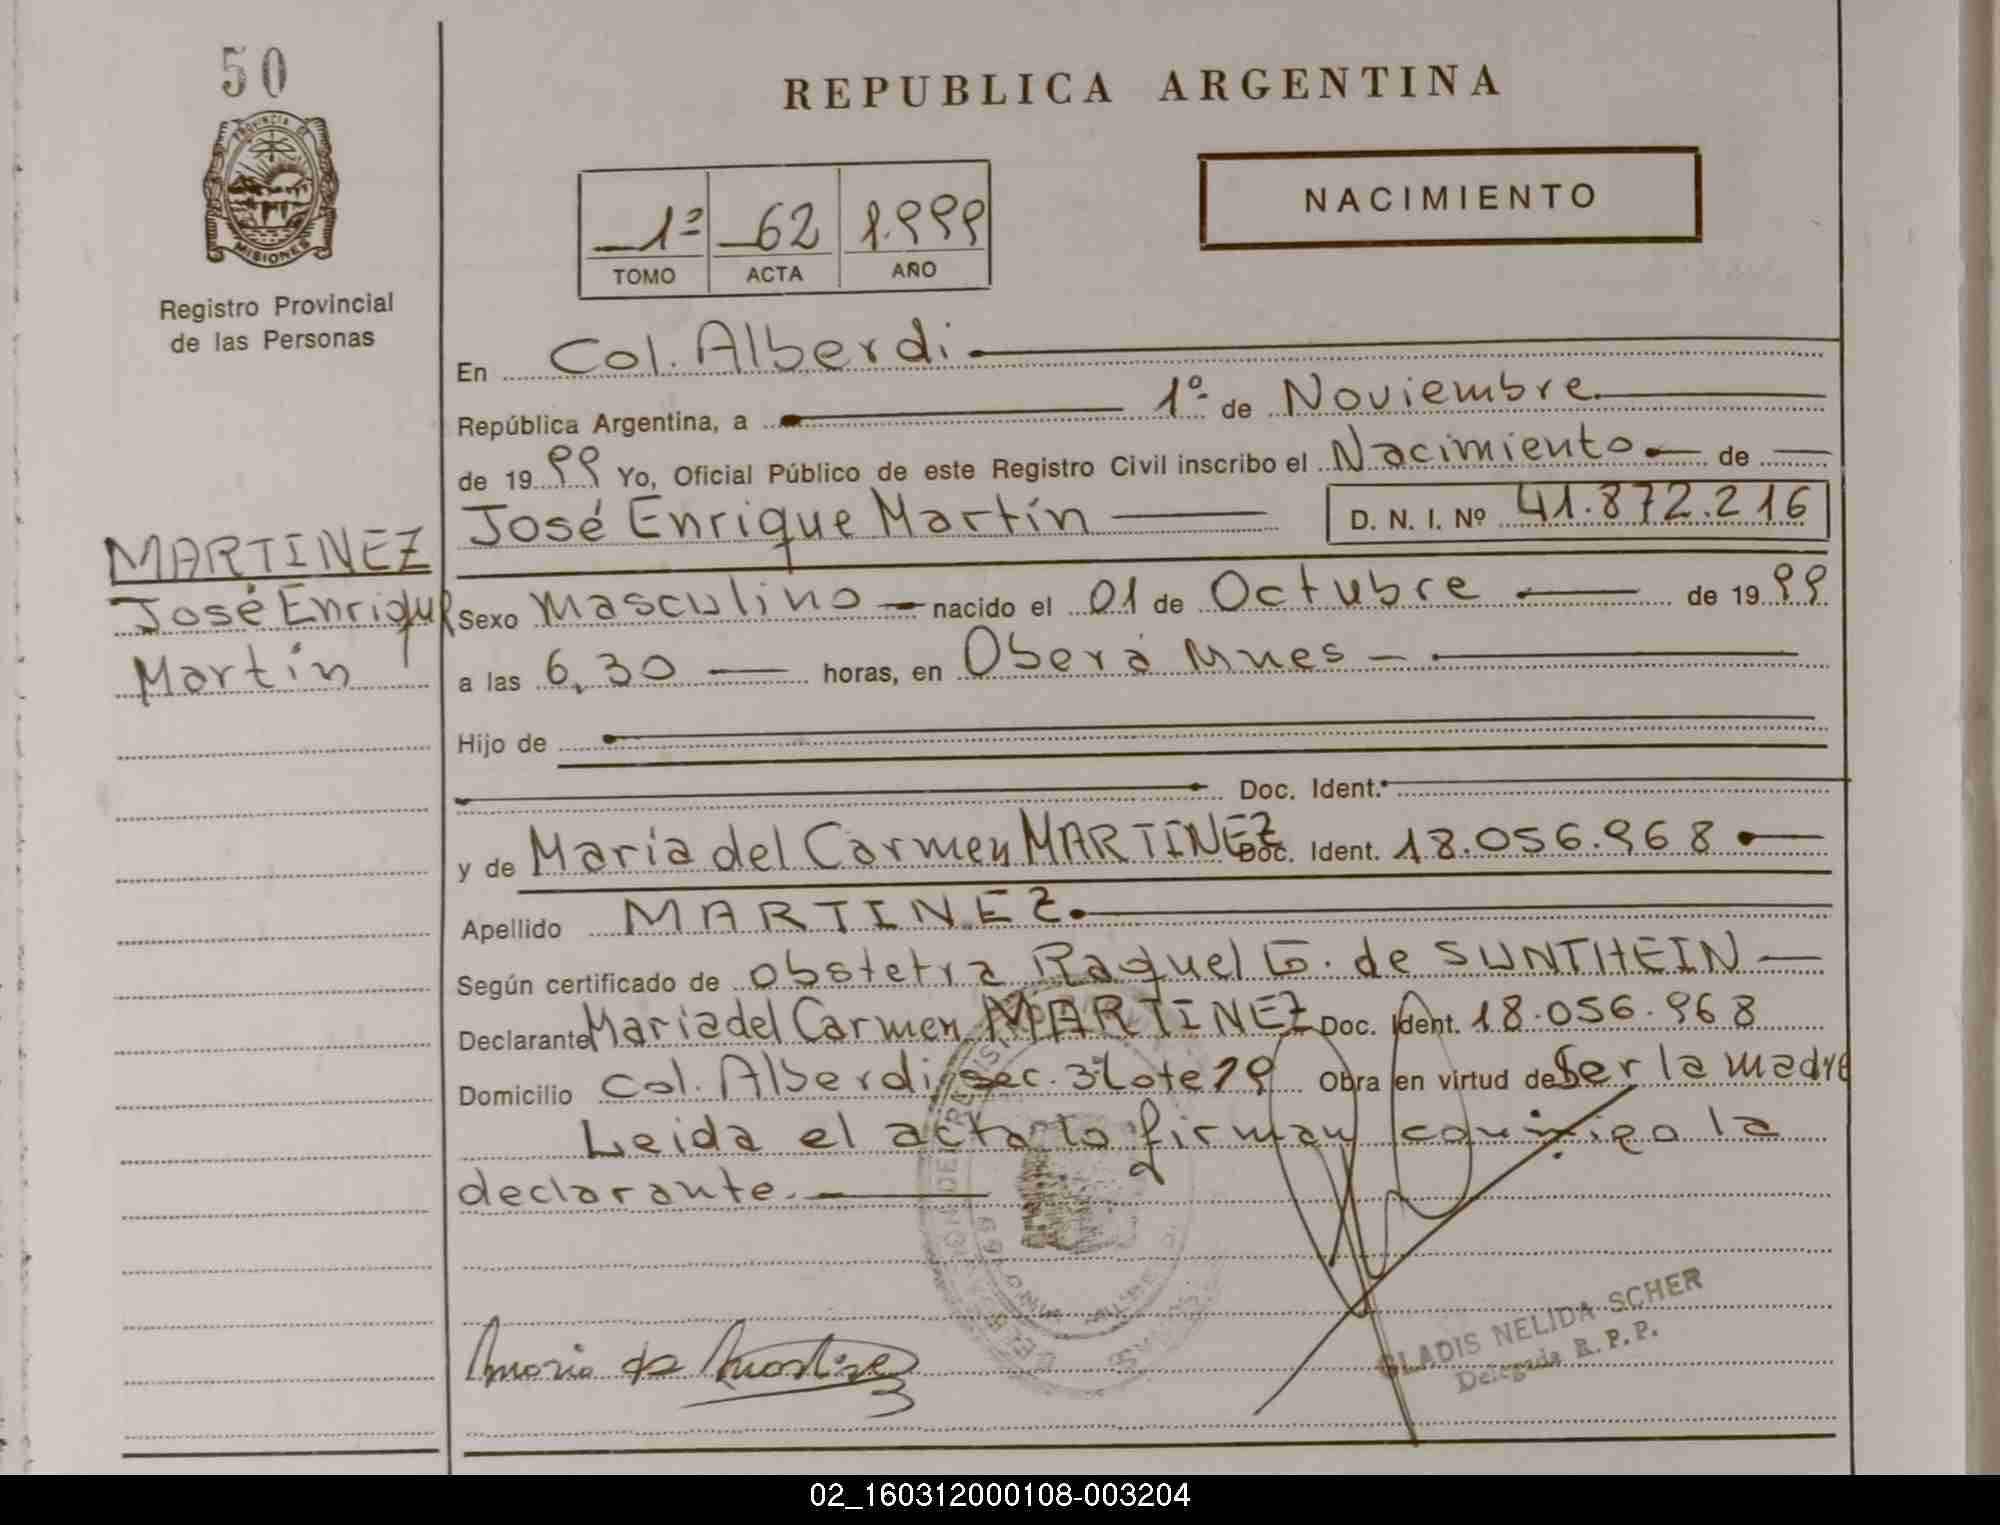 50
PROVINCIA DE
MISIONES
Registro Provincial
de las Personas
MARTINEZ
José Enrique
Martín
REPUBLICA ARGENTINA
1º 62 1.999
TOMO ACTA AÑO
NACIMIENTO
En Col. Alberdi
República Argentina, a 1º de Noviembre
de 1999 Yo, Oficial Público de este Registro Civil inscribo el Nacimiento de
José Enrique Martín D. N. I. Nº 41.872.216
Sexo Masculino nacido el 01 de Octubre de 1999
a las 6,30 horas, en Oberá Mnes
Hijo de
Doc. Ident.
y de María del Carmen MARTINEZ Doc. Ident. 18.056.968
Apellido MARTINEZ.
Según certificado de obstetra Raquel G. de SUNTHEIN
Declarante María del Carmen MARTINEZ Doc. Ident. 18.056.968
Domicilio Col. Alberdi, sec. 3 Lote 19 Obra en virtud de Ser la madre
Leida el acta la firman conmigo la
declarante.
Maria de Martinez
GLADIS NELIDA SCHER
Delegada R.P.P.
02_160312000108-003204